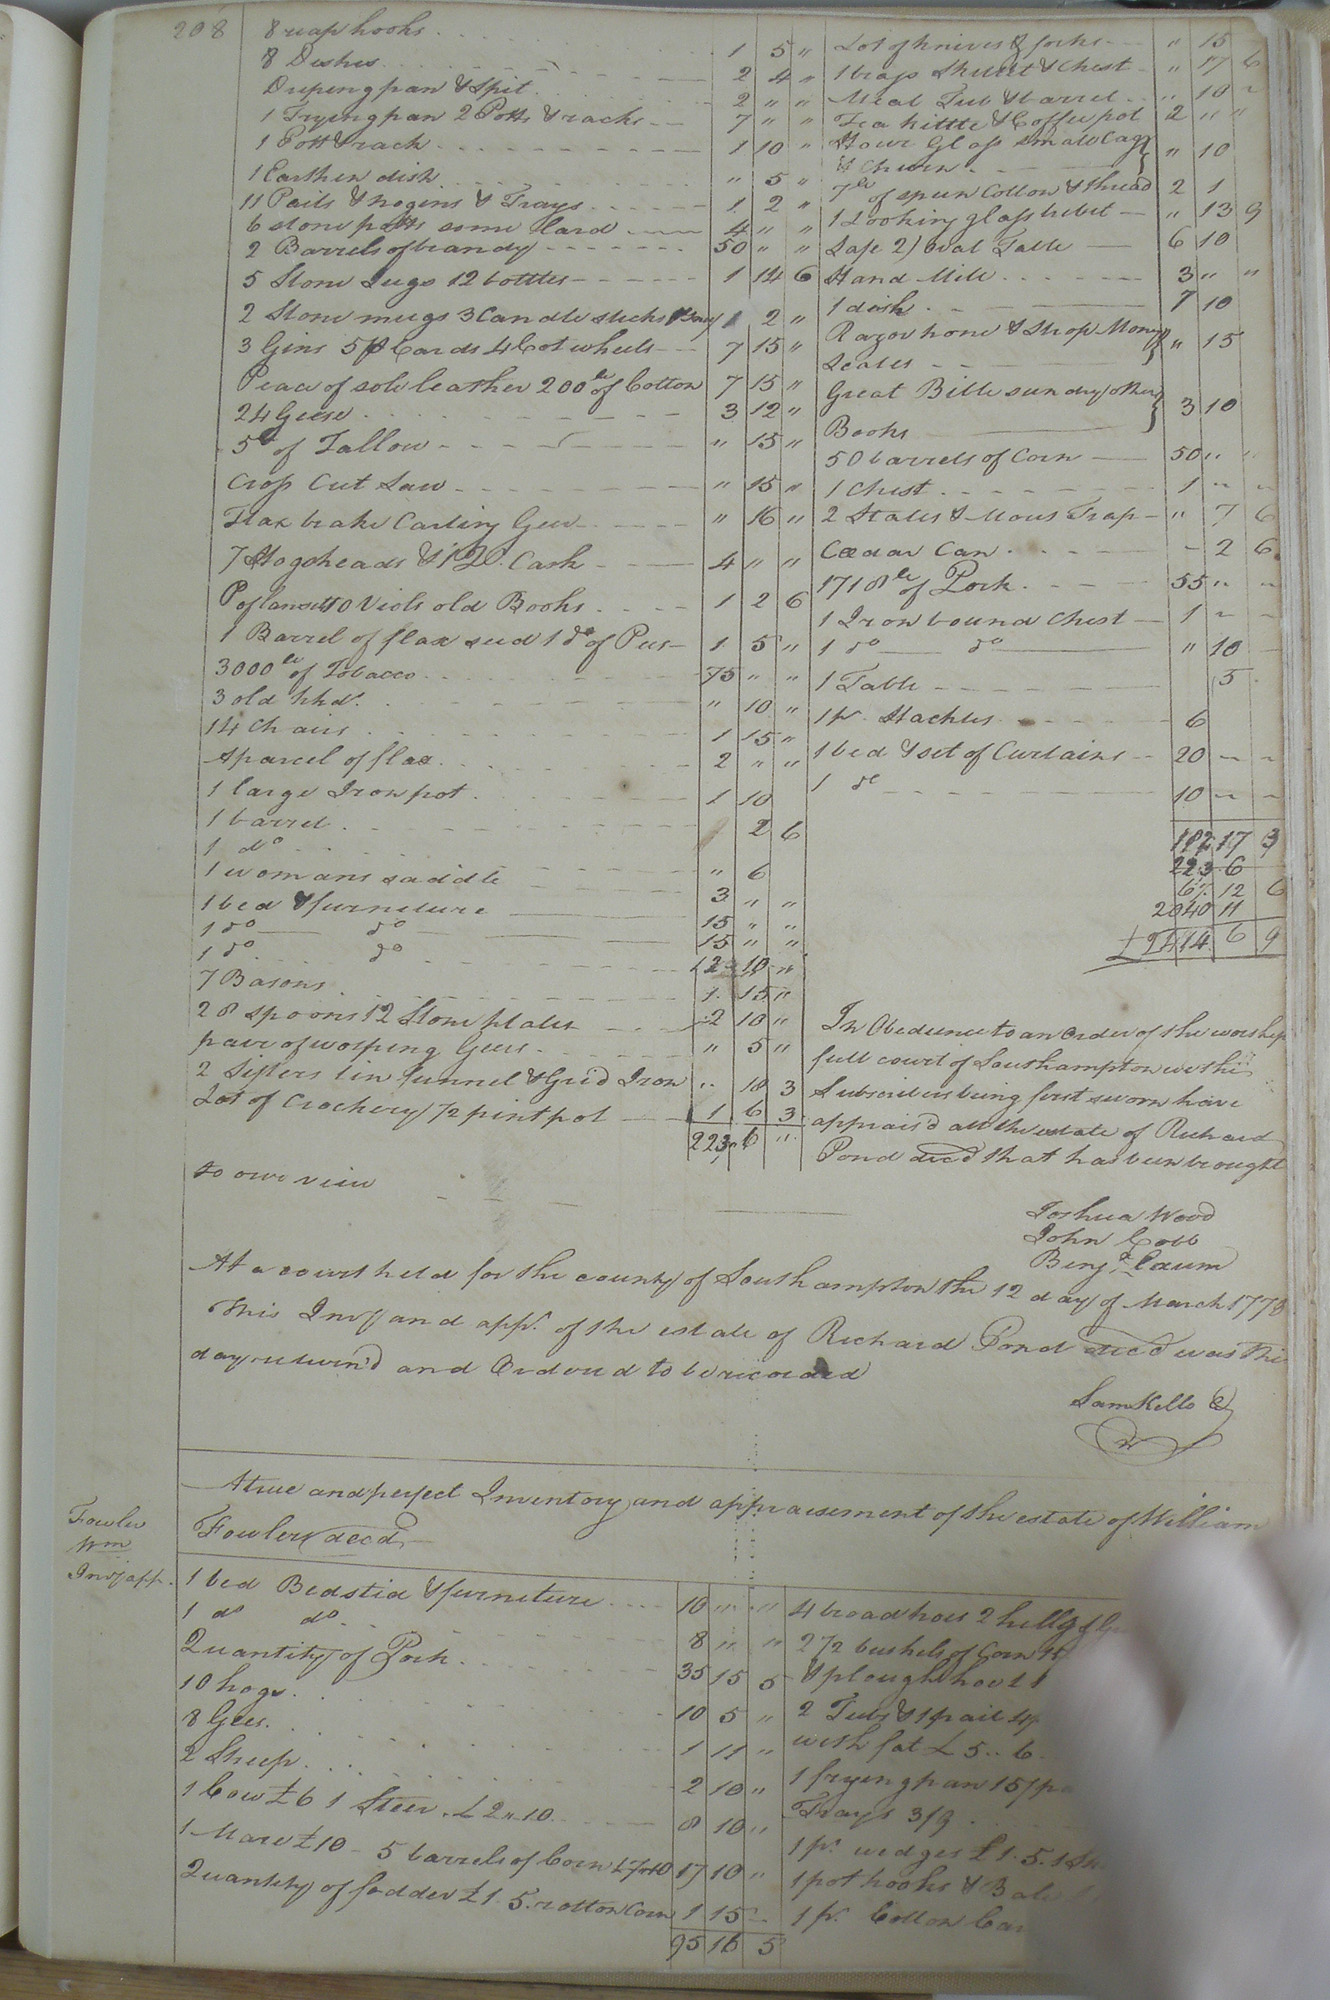 208
8 reap hooks 1 5 "
8 Dishes 2 4 "
Driping pan & Spit 2 " "
1 Frying pan 2 Potts & racks 7 " "
1 Pott & rack 1 10 "
1 Earthen dish " 5 "
11 Pails & nogins & Trays 1 2 "
6 stone potts some lard 4 " "
2 Barrels of brandy 50 " "
5 Stone Jugs 12 bottles 1 14 6
2 Stone mugs 3 Candle sticks 2 "
3 Gins 5 pr Cards 4 Cot wheels 7 15 "
Peace of sole leather 200 lb of Cotton 7 15 "
24 Geese 3 12 "
5 lb of Tallow " 15 "
Cross Cut Saw " 15 "
Flax brake Carting Geer " 16 "
7 Hogsheads & 1 Do. Cask 4 " "
P of lansets 10 Viols old Books 1 2 6
1 Barrel of flax seed 1 do of Peas 1 5 "
3000 lb of Tobacco 75 " "
3 old hhds. " 10 "
14 Chairs 1 15 "
A parcel of flax 2 " "
1 large Iron pot 1 10
1 barrel 2 6
1 do
1 womans saddle " 6
1 bed & furneture 3 " "
1 do do 15 " "
1 do do 15 " "
7 Basons 1 15 "
28 spoons 12 Stone plates 2 10 "
pair of worping Geers " 5 "
2 Sifters 1 tin funnel & Grid Iron " 10 3
Lot of Crockery 1/2 pint pot 1 6 3
223 6 "
Lot of knives & forks " 15
1 brass Skillet & Chest " 17 6
Meal Tub & barrel " 10 "
Tea kittle & Coffee pot 2 " "
Hour Glass small Cagg
& Churn " 10
7 lb of spun Cotton & thread 2 1
1 Looking glass " 13 9
Safe 2) oval Table 6 10
Hand Mill 3 " "
1 desk 7 10
Razor hone & Strop Money
Scales " 15
Great Bible sundry other
Books 3 10
50 barrels of Corn 50 " "
1 Chest 1 " "
2 Slates & Mous Trap " 7 6
Ceedar Can 2 6
1718 lb of Pork 55 " "
1 Iron bound Chest 1 " "
1 do do " 10
1 Table 5
1 pr. Stackles 6
1 bed & set of Curtains 20 " "
1 do 10 " "
17 3
223 6
67 12 6
2040 11
14 6 9
In Obedience to an order of the worship
full court of Southampton we the
Subscribers being first sworn have
apprais'd all the estate of Richard
Pond decd that has been brought
to our view
Joshua Wood
John Cobb
Benja. Exum
At a court held for the county of Southampton the 12 day of March 1778
This Invy and appt. of the estate of Richard Pond decd was this
day return'd and Ordered to be recorded
Sam Kello
A true and perfect Inventory and appraisement of the estate of William
Fowler decd
Fowler
Wm
Inv & app.
1 bed Bedstid & furneture 10 " "
1 do do 8 " "
Quantity of Pork 35 15 5
10 hogs 10 5 "
8 Gees 1 11 "
2 Sheep 2 10 "
1 Cow £6 1 Steer £2 " 10 8 10 "
1 Mare £10 - 5 barrels of Corn £7 " 10 17 10 "
Quantity of fodder £1 5. rotton Corn 1 15
95 16 5
4 broad hoes 2 hilling
2 1/2 bushels of Corn
& plough hoe £1
2 Tubs & 1 pail
with fat £5 " 6
1 frying pan 15/
Trays 3/9
1 pr. wedges £1.5. 1
1 pot hooks & 3
1 pr. Cotton